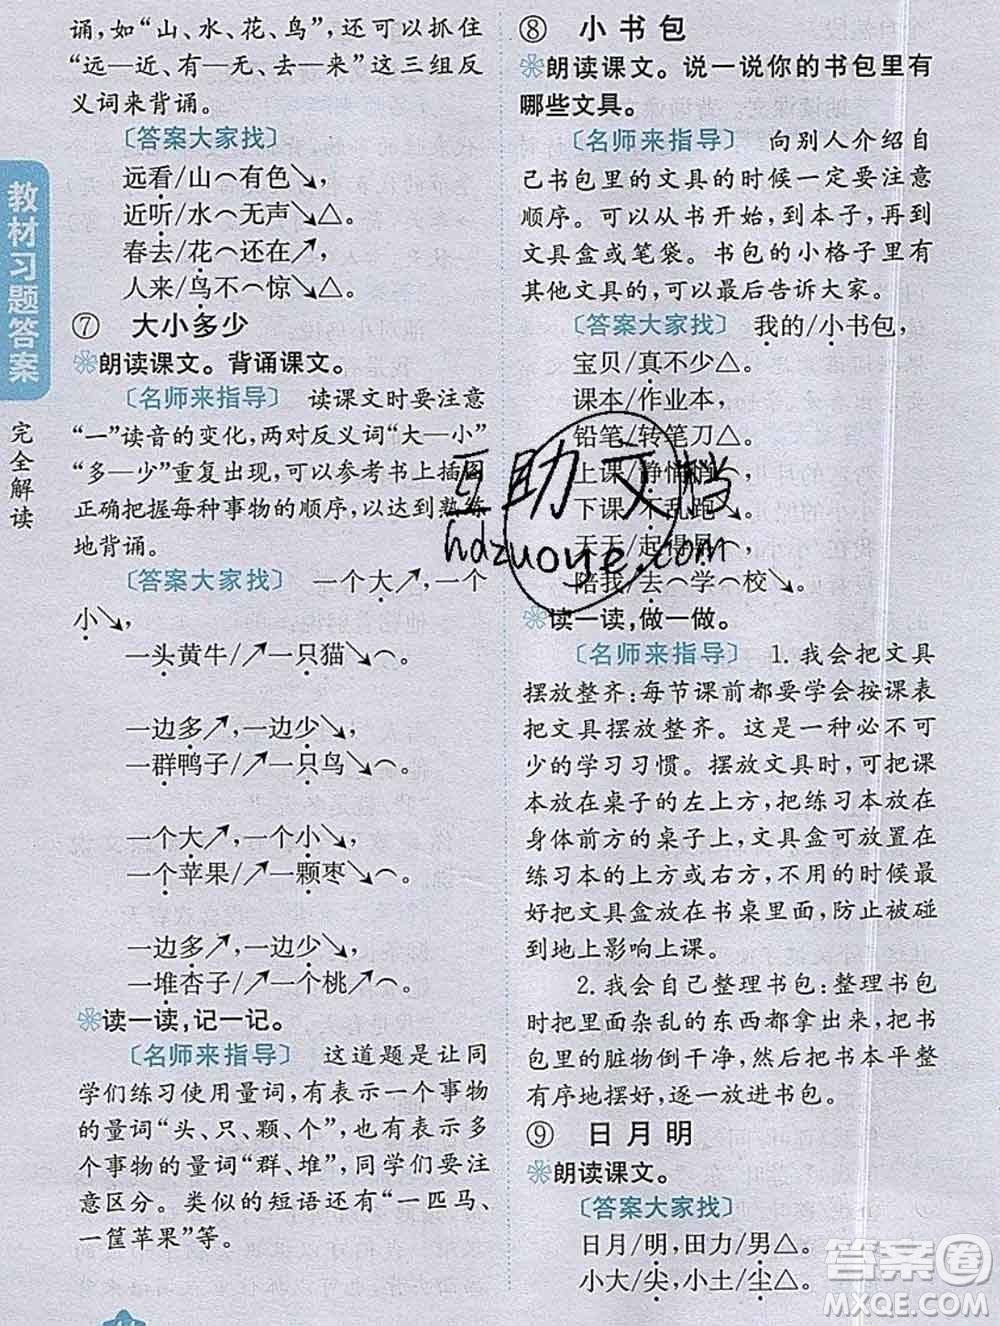 诵,如“山、水、花、鸟”,还可以抓住
“远—近、有—无、去—来”这三组反
义词来背诵。
〔答案大家找〕
远看/山⌒有色↘,
近听/水⌒无声↘△。
春去/花⌒还在↘,
人来/鸟不⌒惊↘△。
⑦ 大小多少
❋朗读课文。背诵课文。
〔名师来指导〕 读课文时要注意
“一”读音的变化,两对反义词“大—小”
“多—少”重复出现,可以参考书上插图
正确把握每种事物的数量,可以达到熟练
地背诵。
〔答案大家找〕 一个大↗,一个
小↘,
一头黄牛/↗一只猫↘⌒。
一边多↗,一边少↘,
一群鸭子/↗一只鸟↘⌒。
一个大↗,一个小↘,
一个苹果/↗一颗枣↘⌒。
一边多↗,一边少↘,
一堆杏子/↗一个桃↘⌒。
❋读一读,记一记。
〔名师来指导〕 这道题是让同
学们练习使用量词,有表示一个事物
的量词“头、只、颗、个”,也有表示多
个事物的量词“群、堆”,同学们要注
意区分。类似的短语还有“一匹马、
一筐苹果”等。
教材习题答案
完全解读
⑧ 小书包
❋朗读课文。说一说你的书包里有
哪些文具。
〔名师来指导〕 向别人介绍自
己书包里的文具的时候一定要注意
顺序。可以从书开始,到本子,再到
文具盒或笔袋。书包的小格子里有
其他文具,可以最后告诉大家。
〔答案大家找〕 我的/小书包,
宝贝/真不少△。
课本/作业本,
铅笔/转笔刀△。
上课/静悄悄⌒,
下课/不乱跑↘。
天天/起得早⌒,
陪我/去⌒学⌒校↘。
❋读一读,做一做。
〔名师来指导〕 1.我会把文具
摆放整齐:每节课前都要学会按课表
把文具摆放整齐。这是一种必不可
少的学习习惯。摆放文具时,可把课
本放在桌子的左上方,把练习本放在
身体前方的桌子上,文具盒可放置在
练习本的下方或右方,不用的时候最
好把文具盒放在书桌里面,防止被碰
到地上影响上课。
2.我会自己整理书包:整理书包
时要把里面杂乱的东西都拿出来,书
包里的脏物倒干净,然后把书本平整
有序地摆好,逐一放进书包。
⑨ 日月明
❋朗读课文。
〔答案大家找〕
日月/明,田力/男△。
小大/尖,小土/尘△。
互助文档
hdzuoye.com
答案圈
MXQE.COM